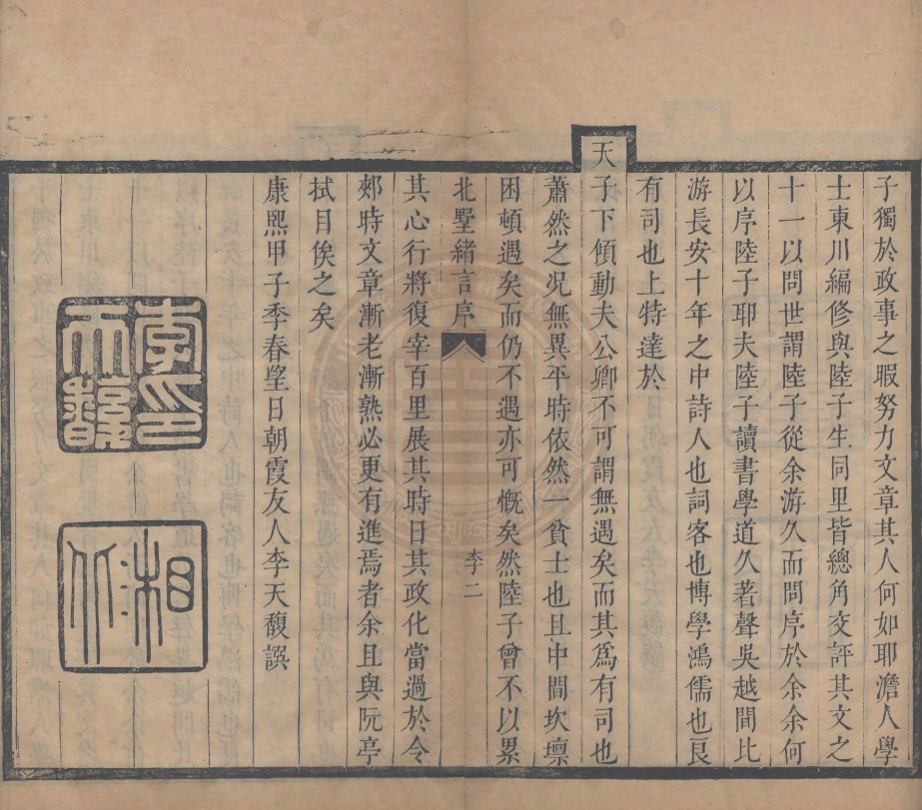 子獨於政事之暇努力文章其人何如耶澹人學
士東川編修與陸子生同里皆總角交評其文之
十一以問世謂陸子從余游久而問序於余余何
以序陸子耶夫陸子讀書學道久著聲吳越間比
游長安十年之中詩人也詞客也博學鴻儒也良
有司也上特達於
天子下傾動夫公卿不可謂無遇矣而其為有司也
蕭然之况無異平時依然一貧士也且中間坎壈
困頓遇矣而仍不遇亦可慨矣然陸子曾不以累
北墅緒言序
李二
其心行將復宰百里展其時日其政化當過於令
郊時文章漸老漸熟必更有進焉者余且與阮亭
拭目俟之矣
康熙甲子季春望日朝霞友人李天馥譔
李印天馥
湘北